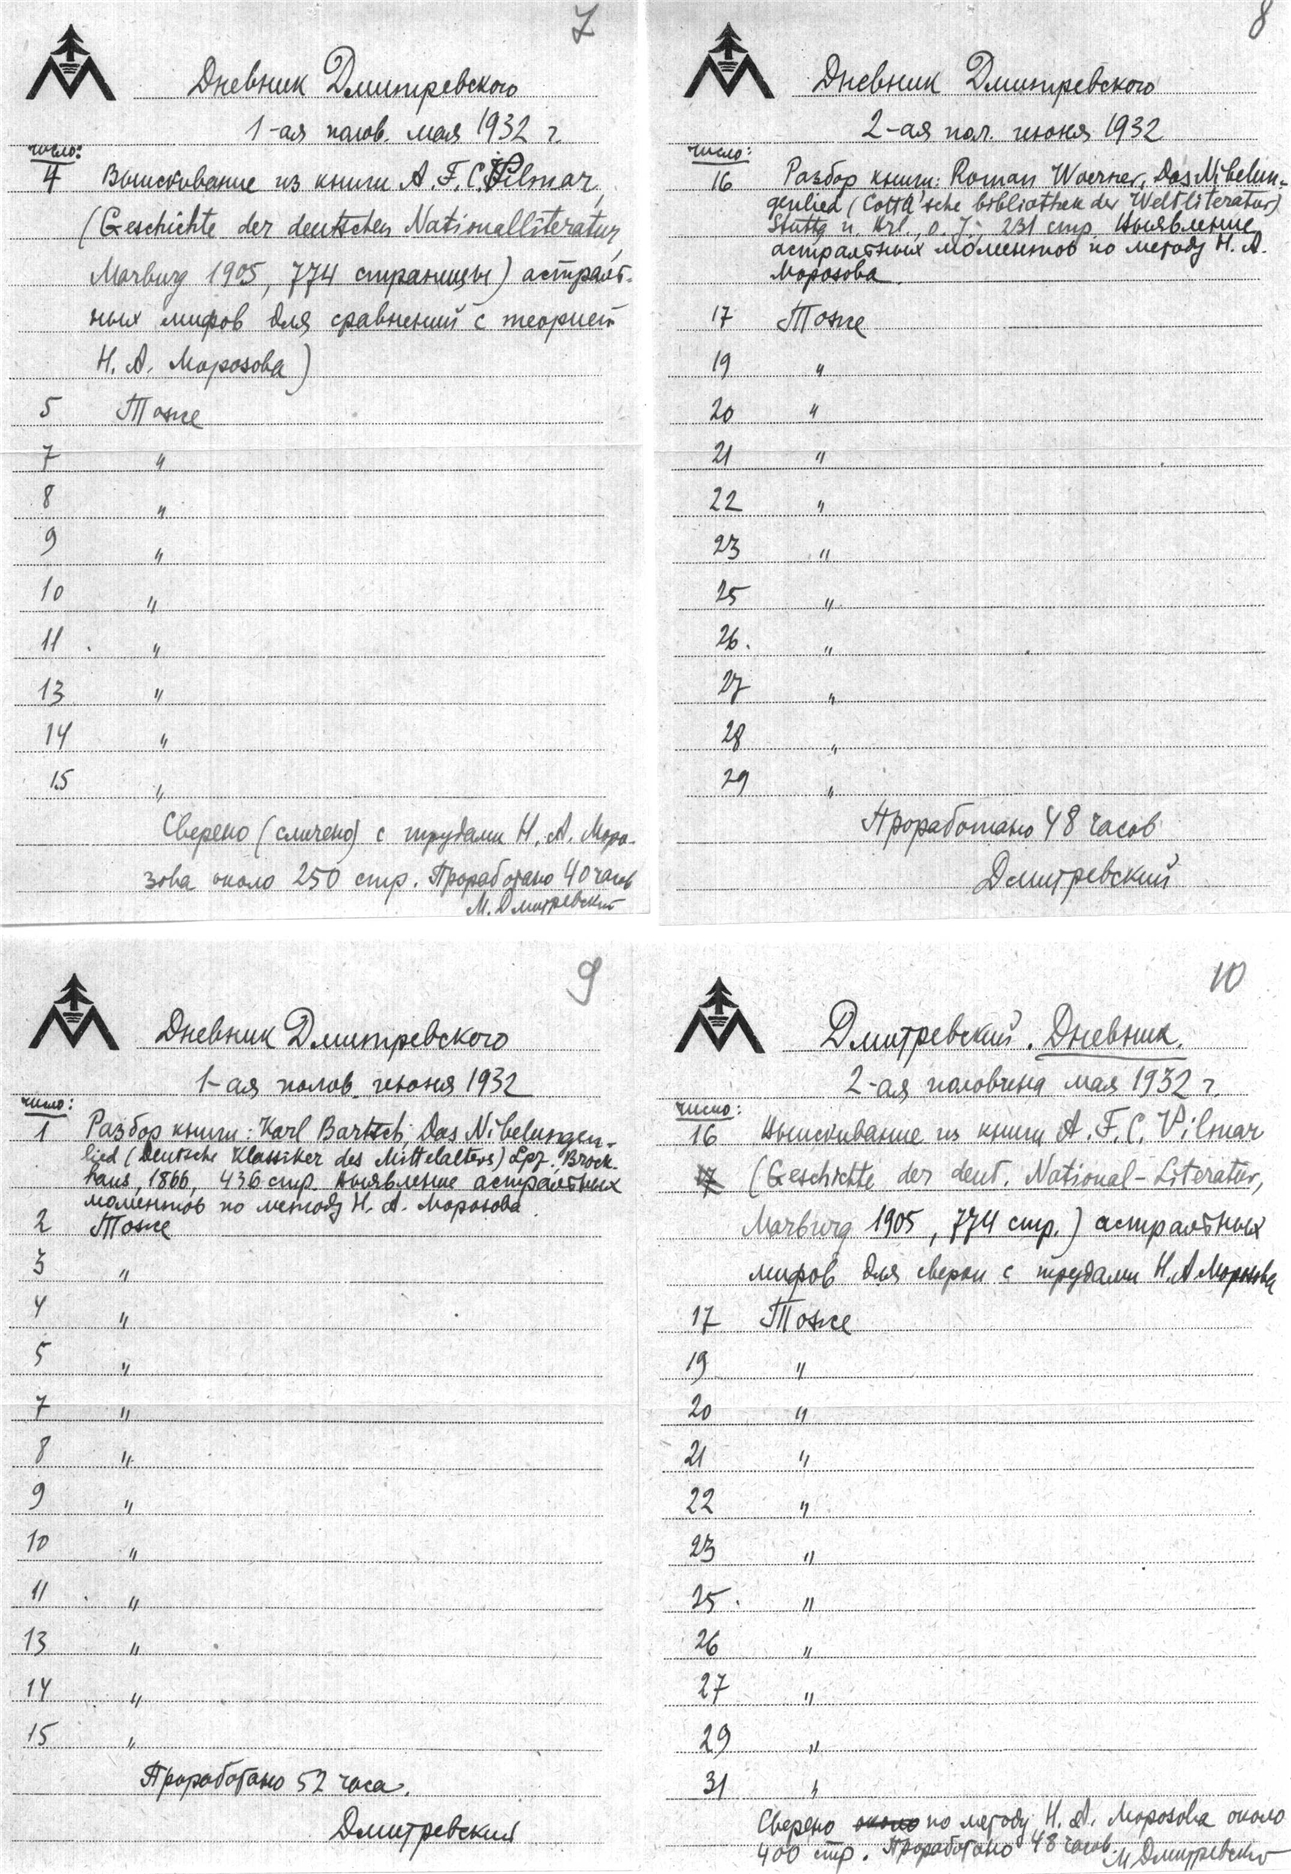 7
Дневник Дмитревского
1-ая полов. мая 1932 г.
число:
4 Выискивание из книги A. F. C. Vilmar,
(Geschichte der deutschen Nationalliteratur,
Marburg 1905, 774 страницы) астраль-
ных мифов для сравнений с теорией
Н. А. Морозова)
5 Тоже
7 "
8 "
9 "
10 "
11 "
13 "
14 "
15 "
Сверено (сличено) с трудами Н. А. Моро-
зова около 250 стр. Проработано 40 часов
М. Дмитревский
8
Дневник Дмитревского
2-ая пол. июня 1932
число:
16 Разбор книги: Roman Woerner, Das Nibelun-
genlied (Cotta'sche bibliothek der Weltliteratur)
Stuttg u. Brl., o. J. - 231 стр. Выявление
астральных моментов по методу Н. А.
Морозова.
17 Тоже
19 "
20 "
21 "
22 "
23 "
25 "
26. "
27 "
28 "
29 "
Проработано 48 часов
Дмитревский
9
Дневник Дмитревского
1-ая полов. июня 1932
число:
1 Разбор книги: Karl Bartsch, Das Nibelungen-
lied (Deutsche Klassiker des Mittelalters) Lpz., Brock-
haus, 1866, 436 стр. Выявление астральных
моментов по методу Н. А. Морозова.
2 Тоже
3 "
4 "
5 "
7 "
8 "
9 "
10 "
11 "
13 "
14 "
15 "
Проработано 52 часа.
Дмитревский
10
Дмитревский. Дневник.
2-ая половина мая 1932 г.
число:
16 Выискивание из книги A. F. C. Vilmar
17 (Geschichte der deut. National-Literatur,
Marburg 1905, 774 стр.) астральных
мифов для сверки с трудами Н. А Морозова
17 Тоже
19 "
20 "
21 "
22 "
23 "
25. "
26 "
27 "
29 "
31 "
Сверено около по методу Н. А. Морозова около
400 стр. Проработано 48 часов.
М Дмитревский